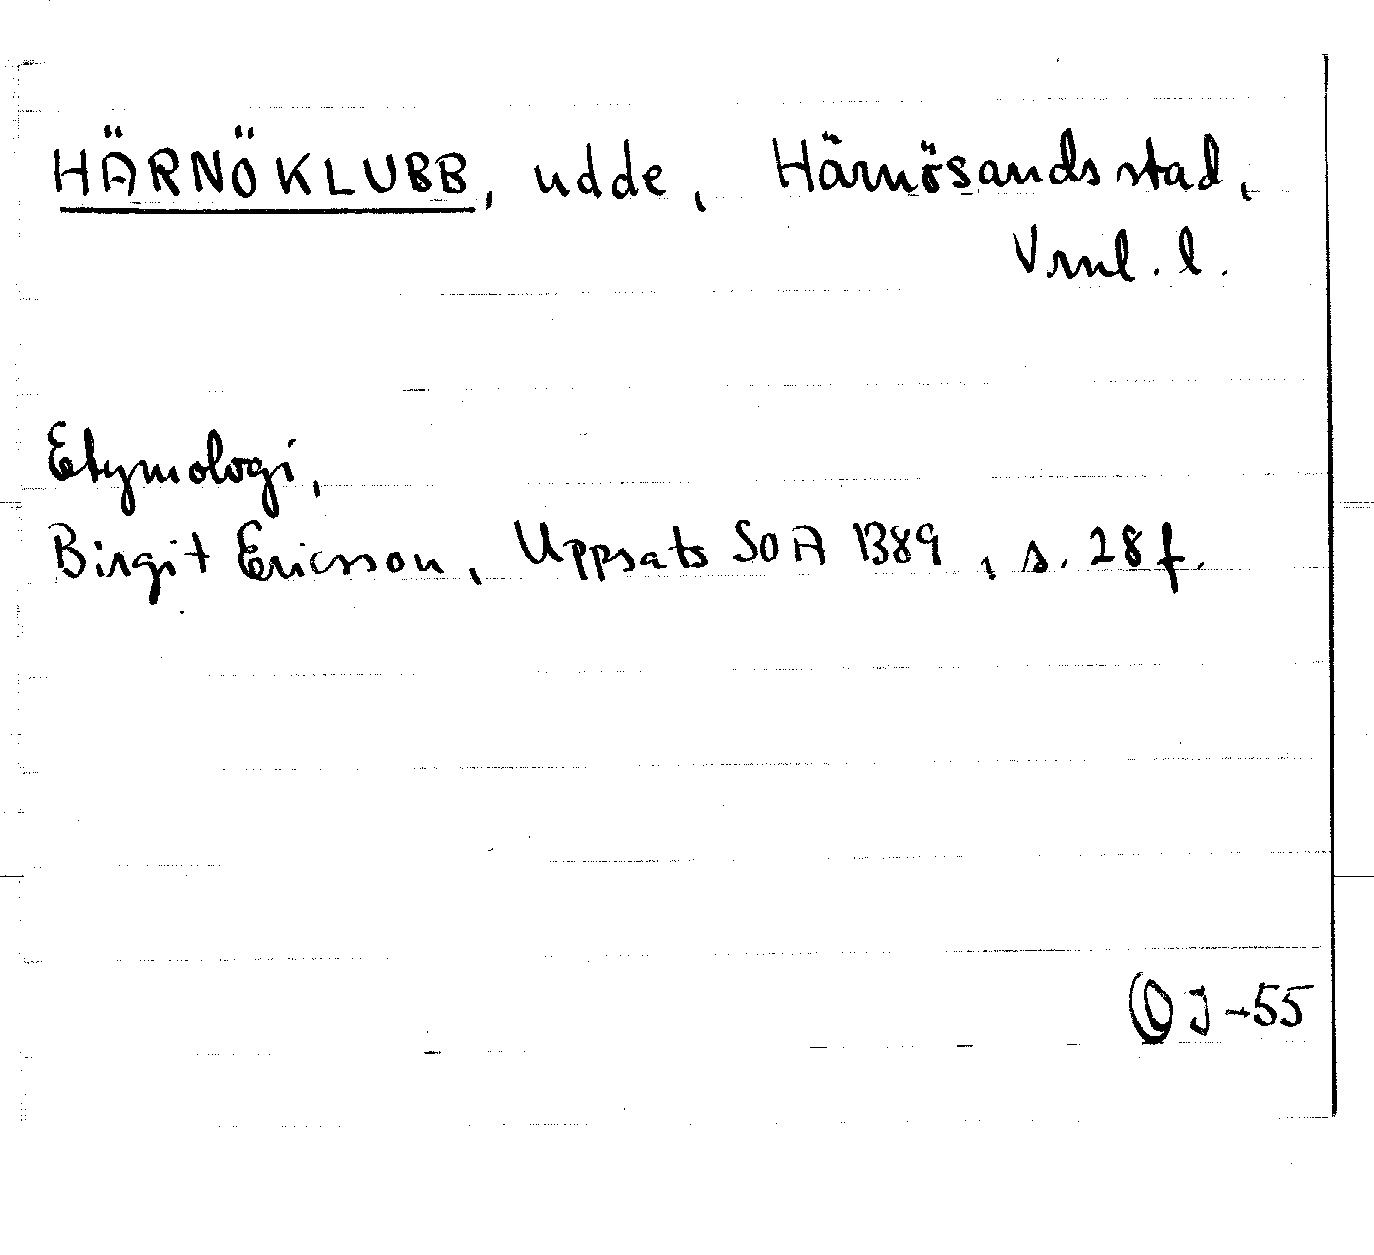 HÄRNÖKLUBB, udde, Härnösands stad,
Vrnl. l.
Etymologi,
Birgit Ericsson, Uppsats SOA 1389, s. 28 f.
OJ-55